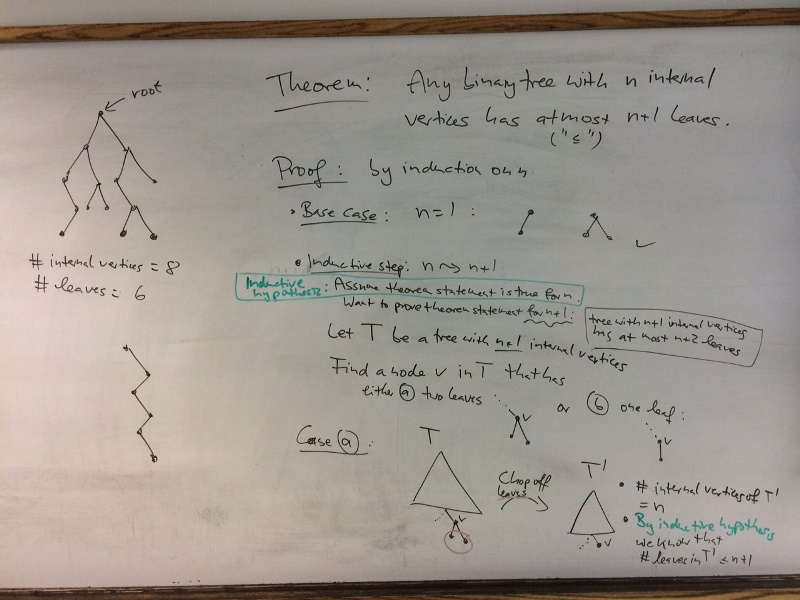 root
Theorem: Any binary tree with n internal
vertices has at most n+1 leaves.
("≤")
Proof: by induction on n
• Base case: n=1: ✓
• Inductive step: n ⤳ n+1
Inductive hypothesis: Assume theorem statement is true for n.
Want to prove theorem statement for n+1:
tree with n+1 internal vertices
has at most n+2 leaves
Let T be a tree with n+1 internal vertices
Find a node v in T that has
either ⓐ two leaves v or ⓑ one leaf: v
# internal vertices = 8
# leaves = 6
Case ⓐ:
T
v
Chop off
leaves
T'
v
• # internal vertices of T'
= n
• By inductive hypothesis
we know that
# leaves in T' ≤ n+1